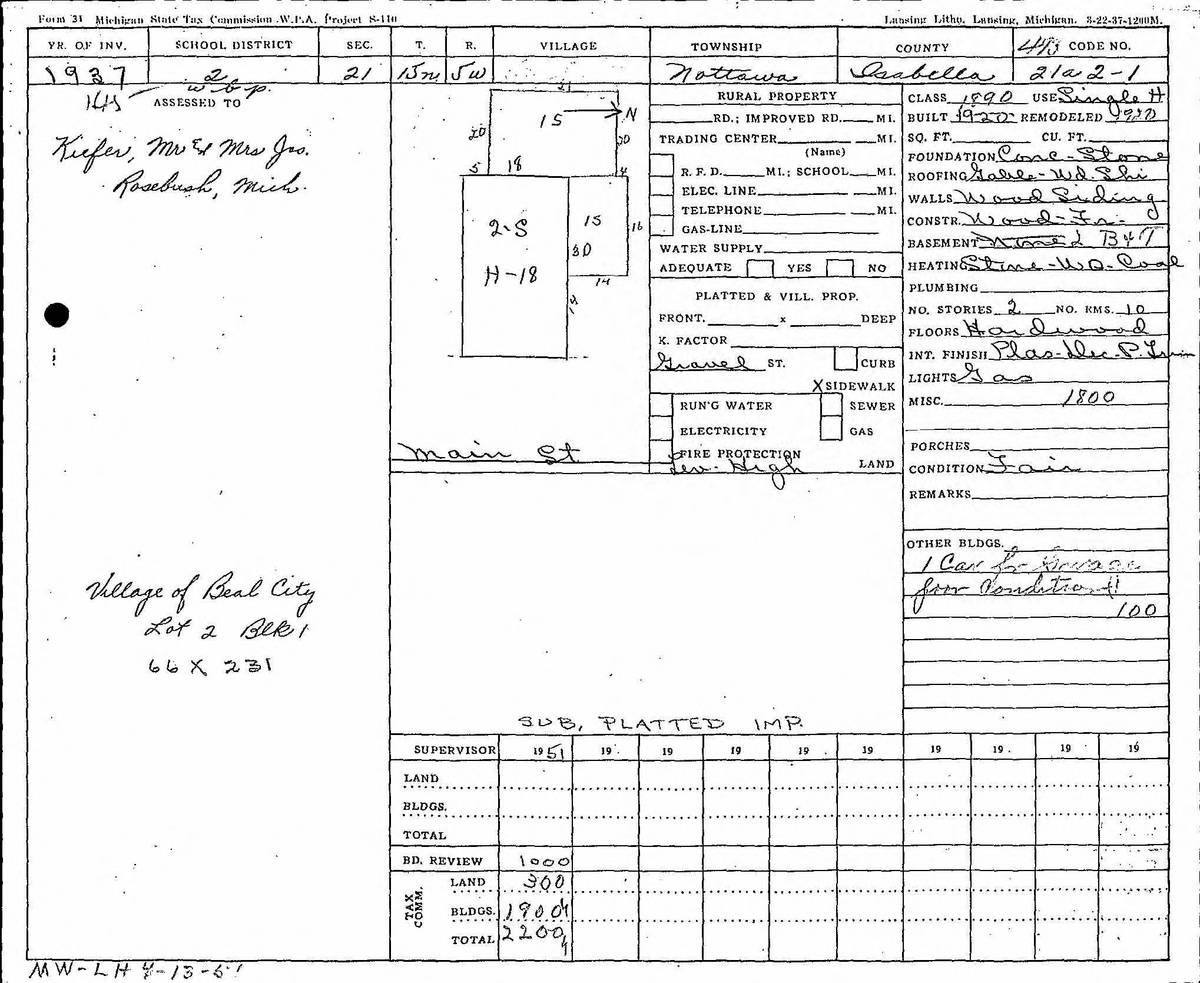 Form 31 Michigan State Tax Commission W.P.A. Project S-110
Lansing Litho. Lansing, Michigan. 3-22-37-1200M.
YR. OF INV. SCHOOL DISTRICT SEC. T. R. VILLAGE TOWNSHIP COUNTY 443 CODE NO.
1937 2 21 15N 5W Nottawa Isabella 21a 2-1
w.g.p.
145
ASSESSED TO
Kiefer, Mr & Mrs Jos.
Rosebush, Mich.
Village of Beal City
Lot 2 Blk 1
66 X 231
21
15
N
20
20
5
18
4
2-S
H-18
15
16
30
14
Main St
RURAL PROPERTY
RD.; IMPROVED RD. MI.
TRADING CENTER MI.
(Name)
R. F. D. MI.; SCHOOL MI.
ELEC. LINE MI.
TELEPHONE MI.
GAS-LINE
WATER SUPPLY
ADEQUATE YES NO
PLATTED & VILL. PROP.
FRONT. x DEEP
K. FACTOR
Gravel ST. CURB
X SIDEWALK
RUN'G WATER SEWER
ELECTRICITY GAS
FIRE PROTECTION
Lev-High LAND
CLASS 1890 USE Single H
BUILT 1920 REMODELED 1920
SQ. FT. CU. FT.
FOUNDATION Conc-Stone
ROOFING Gable-Wd. Shi
WALLS Wood Siding
CONSTR. Wood-Fr-
BASEMENT None
HEATING Stove-Wd-Coal
PLUMBING
NO. STORIES 2 NO. RMS. 10
FLOORS Hardwood
INT. FINISH Plas-Dec-P. Trim
LIGHTS Gas
MISC. 1800
PORCHES
CONDITION Fair
REMARKS
OTHER BLDGS.
1 Car Fr Garage
Poor Condition
100
SUB, PLATTED IMP.
SUPERVISOR 1951 19 19 19 19 19 19 19 19 19
LAND
BLDGS.
TOTAL
BD. REVIEW 1000
TAX COMM.
LAND 300
BLDGS. 1900
TOTAL 2200
MW-LH 4-13-51